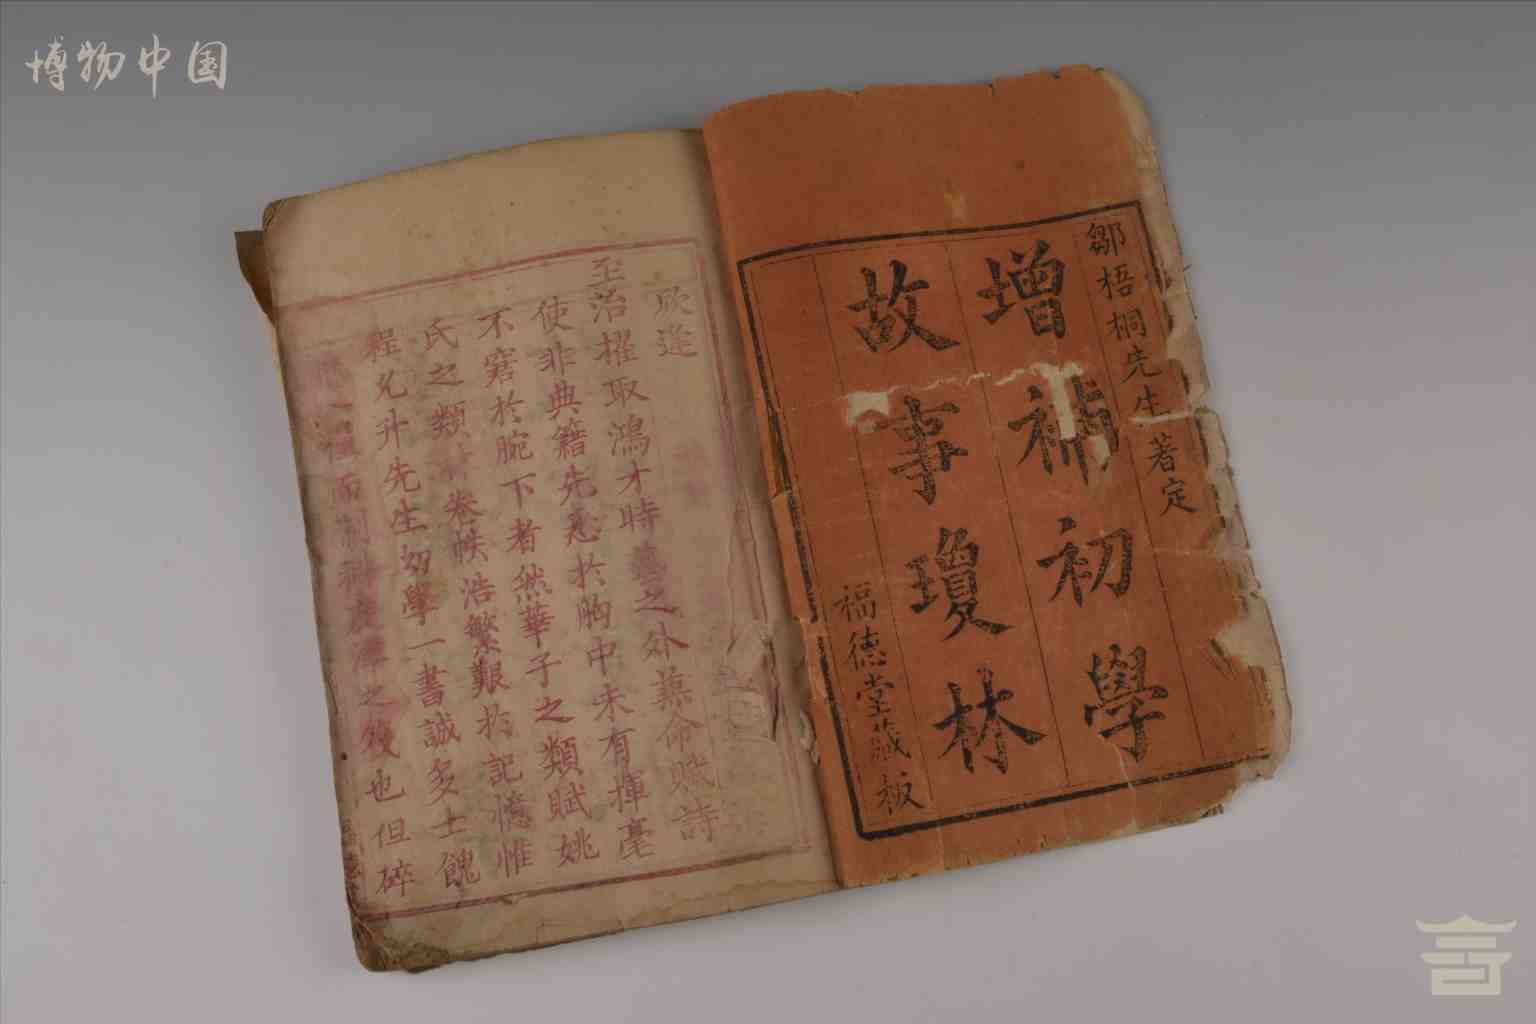 博物中国
鄒梧桐先生著定
增補初學
故事瓊林
福德堂藏板
欣逢
至治擢取鴻才時藝之外兼命賦詩
使非典籍先悉於胸中未有揮毫
不窘於腕下者然華子之類賦姚
氏之類 卷帙浩繁艱於記憶惟
程允升先生幼學一書誠多士餽
之後也但碎